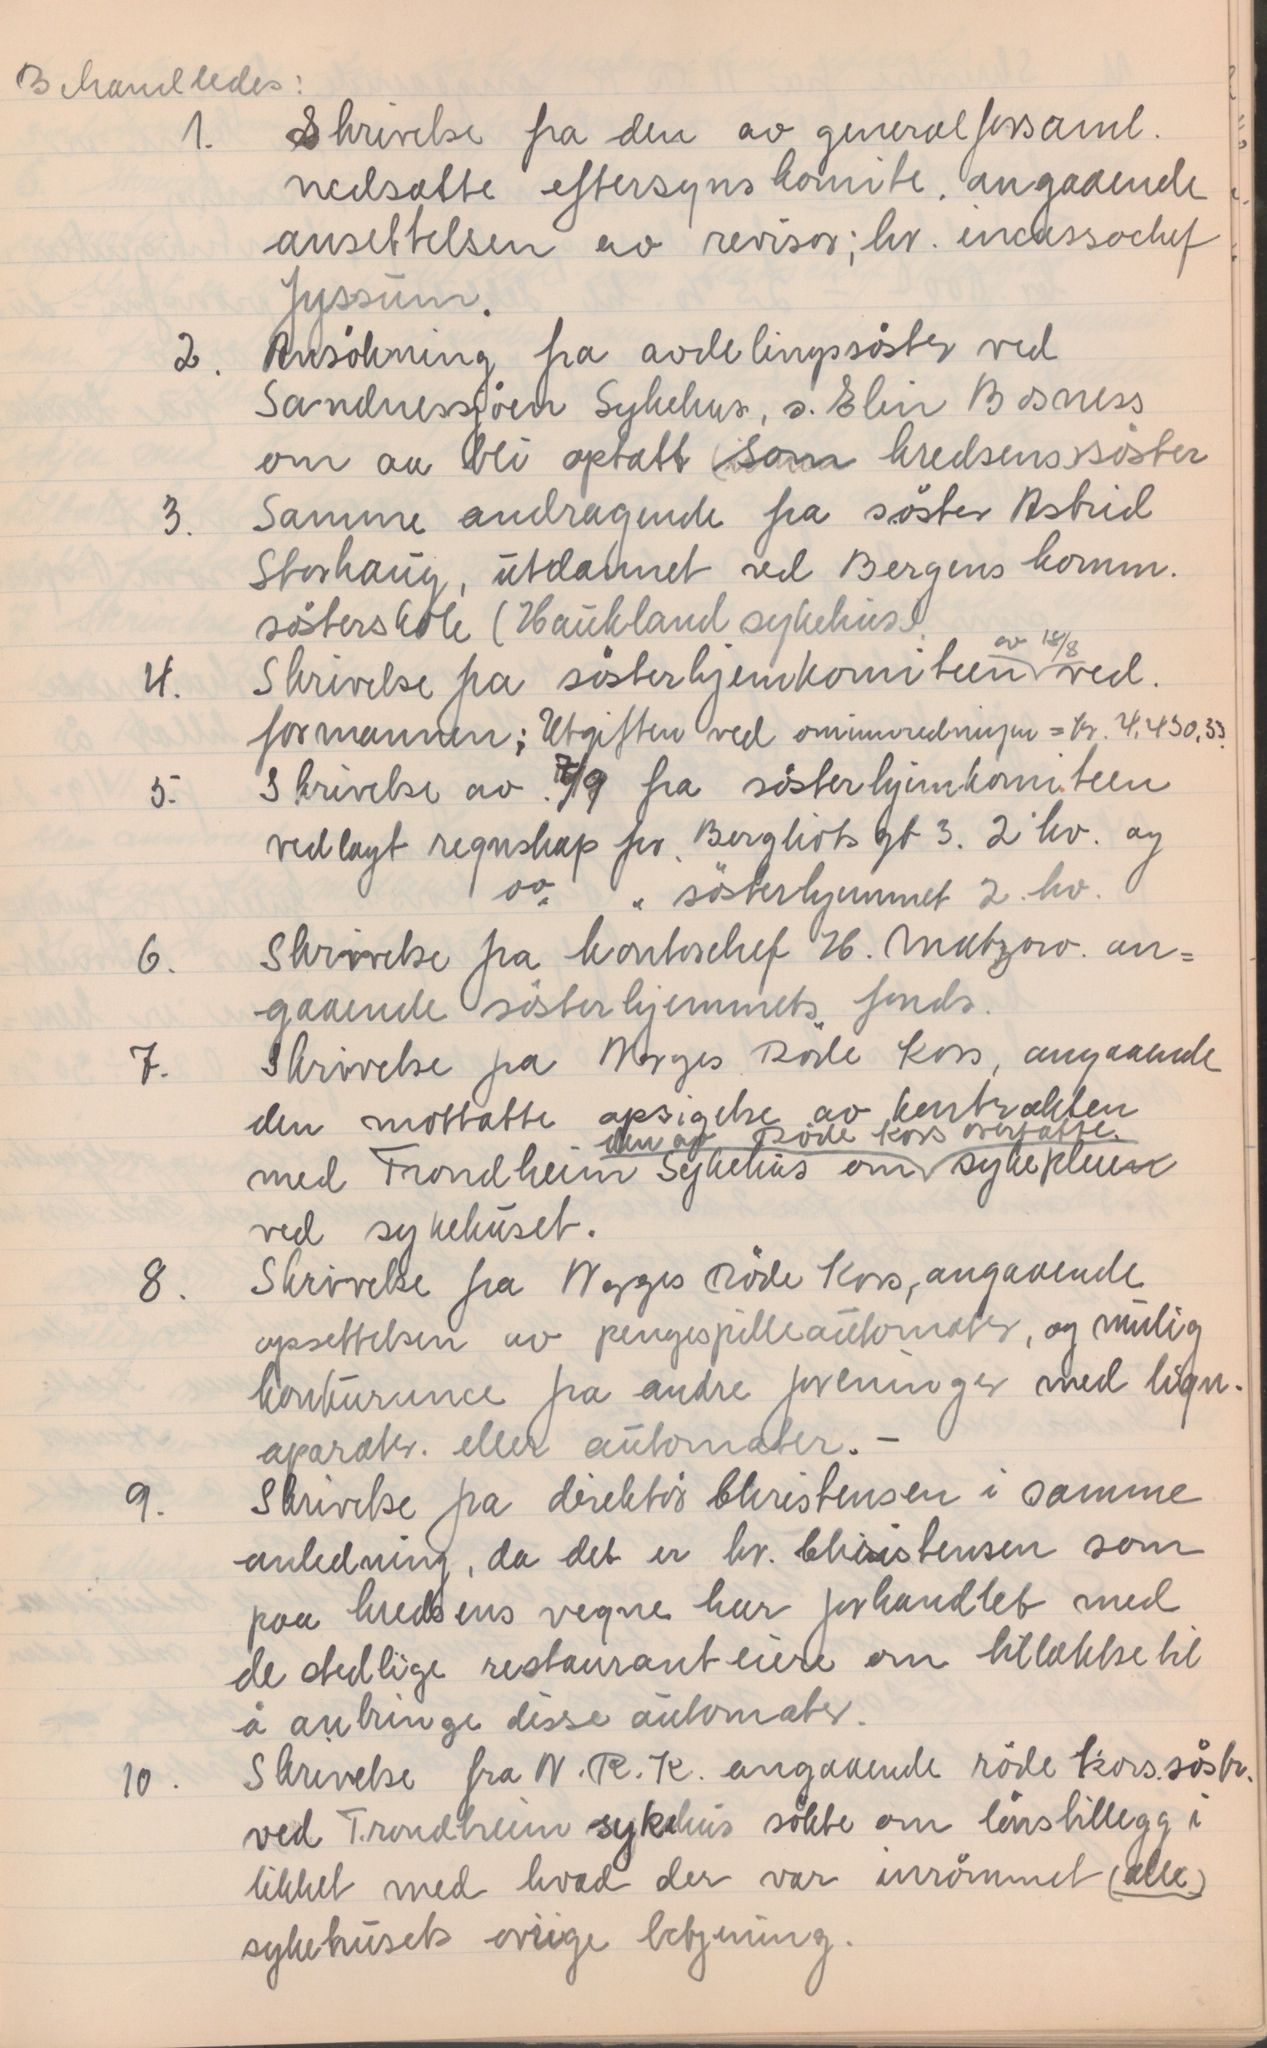 Behandledes:
1. Skrivelse fra den av generalforsaml.
nedsatte eftersynskomite, angaaende
ansettelsen av revisor; hr. incassochef
Jyssum.
2. Ansökning fra avdelingssöster ved
Sandnessjöen Sykehus, s. Elin Bosness
om aa bli optatt som kredsens söster
3. Samme andragende fra söster Astrid
Storhaug, utdannet ved Bergens komm.
sösterskole (Haukland sykehus)
4. Skrivelse fra sösterhjemkomiteen av 18/8 ved.
formannen; Utgiften ved ominnredningen = kr. 4.430,33.
5. Skrivelse av 7/9 fra sösterhjemkomiteen
vedlagt regnskap for Bergliots gt 3. 2 hv. og
do. " sösterhjemmet 2. hv.
6. Skrivelse fra kontorchef H. Matzow. an=
gaaende sösterhjemmets fonds.
7. Skrivelse fra Norges Röde Kors, angaaende
den mottatte opsigelse av kontrakten
med Trondheim Sykehus om den av Röde Kors overtatte sykepleie
ved sykehuset.
8. Skrivelse fra Norges Röde Kors, angaaende
opsettelsen av pengespilleautomater, og mulig
konkurance fra andre foreninger med lign.
aparater. eller automater. -
9. Skrivelse fra direktör Christensen i samme
anledning, da det er hr. Christensen som
paa kredsens vegne har forhandlet med
de stedlige restauranteiere om tillatelse til
å anbringe disse automater.
10. Skrivelse fra N.R.K. angaaende röde kors söstr.
ved Trondheim sykehus sökte om lönstillegg i
likhet med hvad der var inrömmet (alle)
sykehusets övrige betjening.